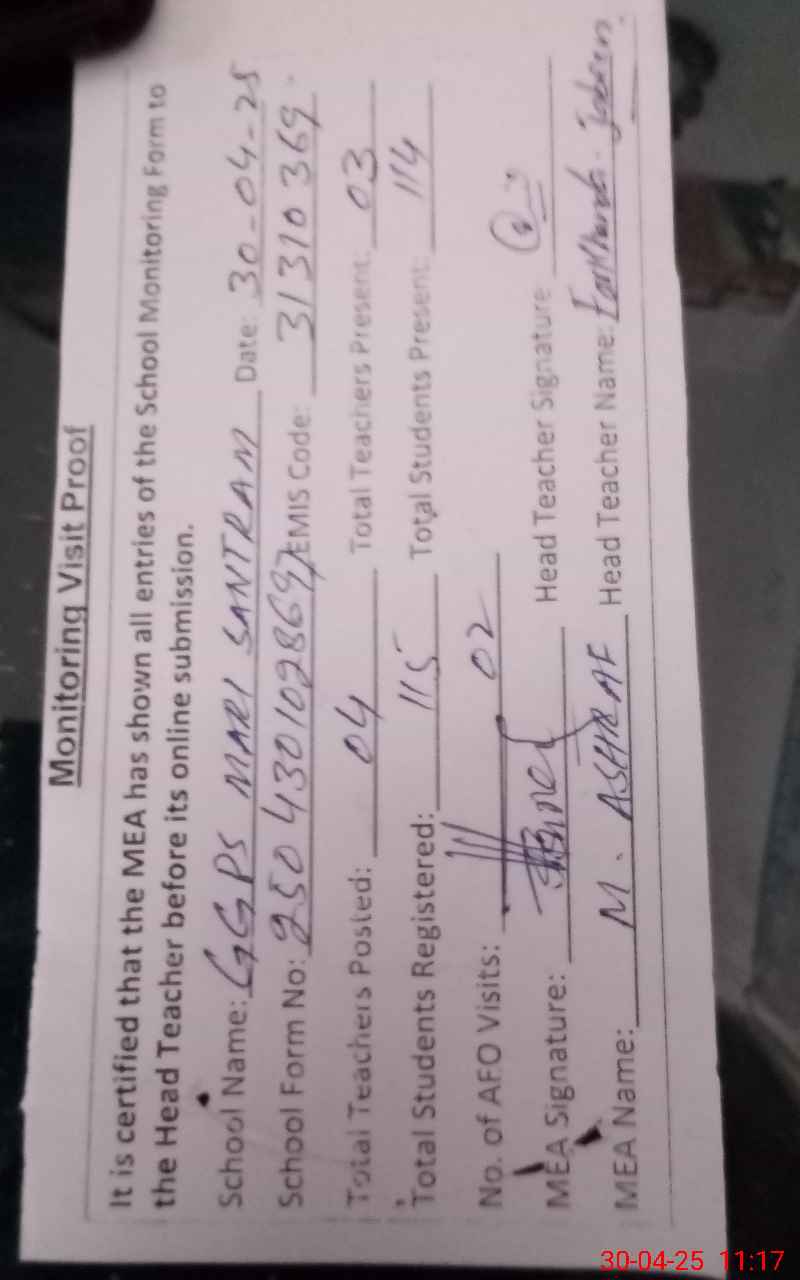 Monitoring Visit Proof
It is certified that the MEA has shown all entries of the School Monitoring Form to
the Head Teacher before its online submission.
School Name: GGPS MARI SANTRAM Date: 30-04-25
School Form No: EMIS Code: 31310369
Total Teachers Posted: 04 Total Teachers Present: 03
Total Students Registered: 115 Total Students Present: 114
No. of AFO Visits: 02
MEA Signature: Head Teacher Signature
MEA Name: M. ASHRAF Head Teacher Name:
30-04-25 11:17